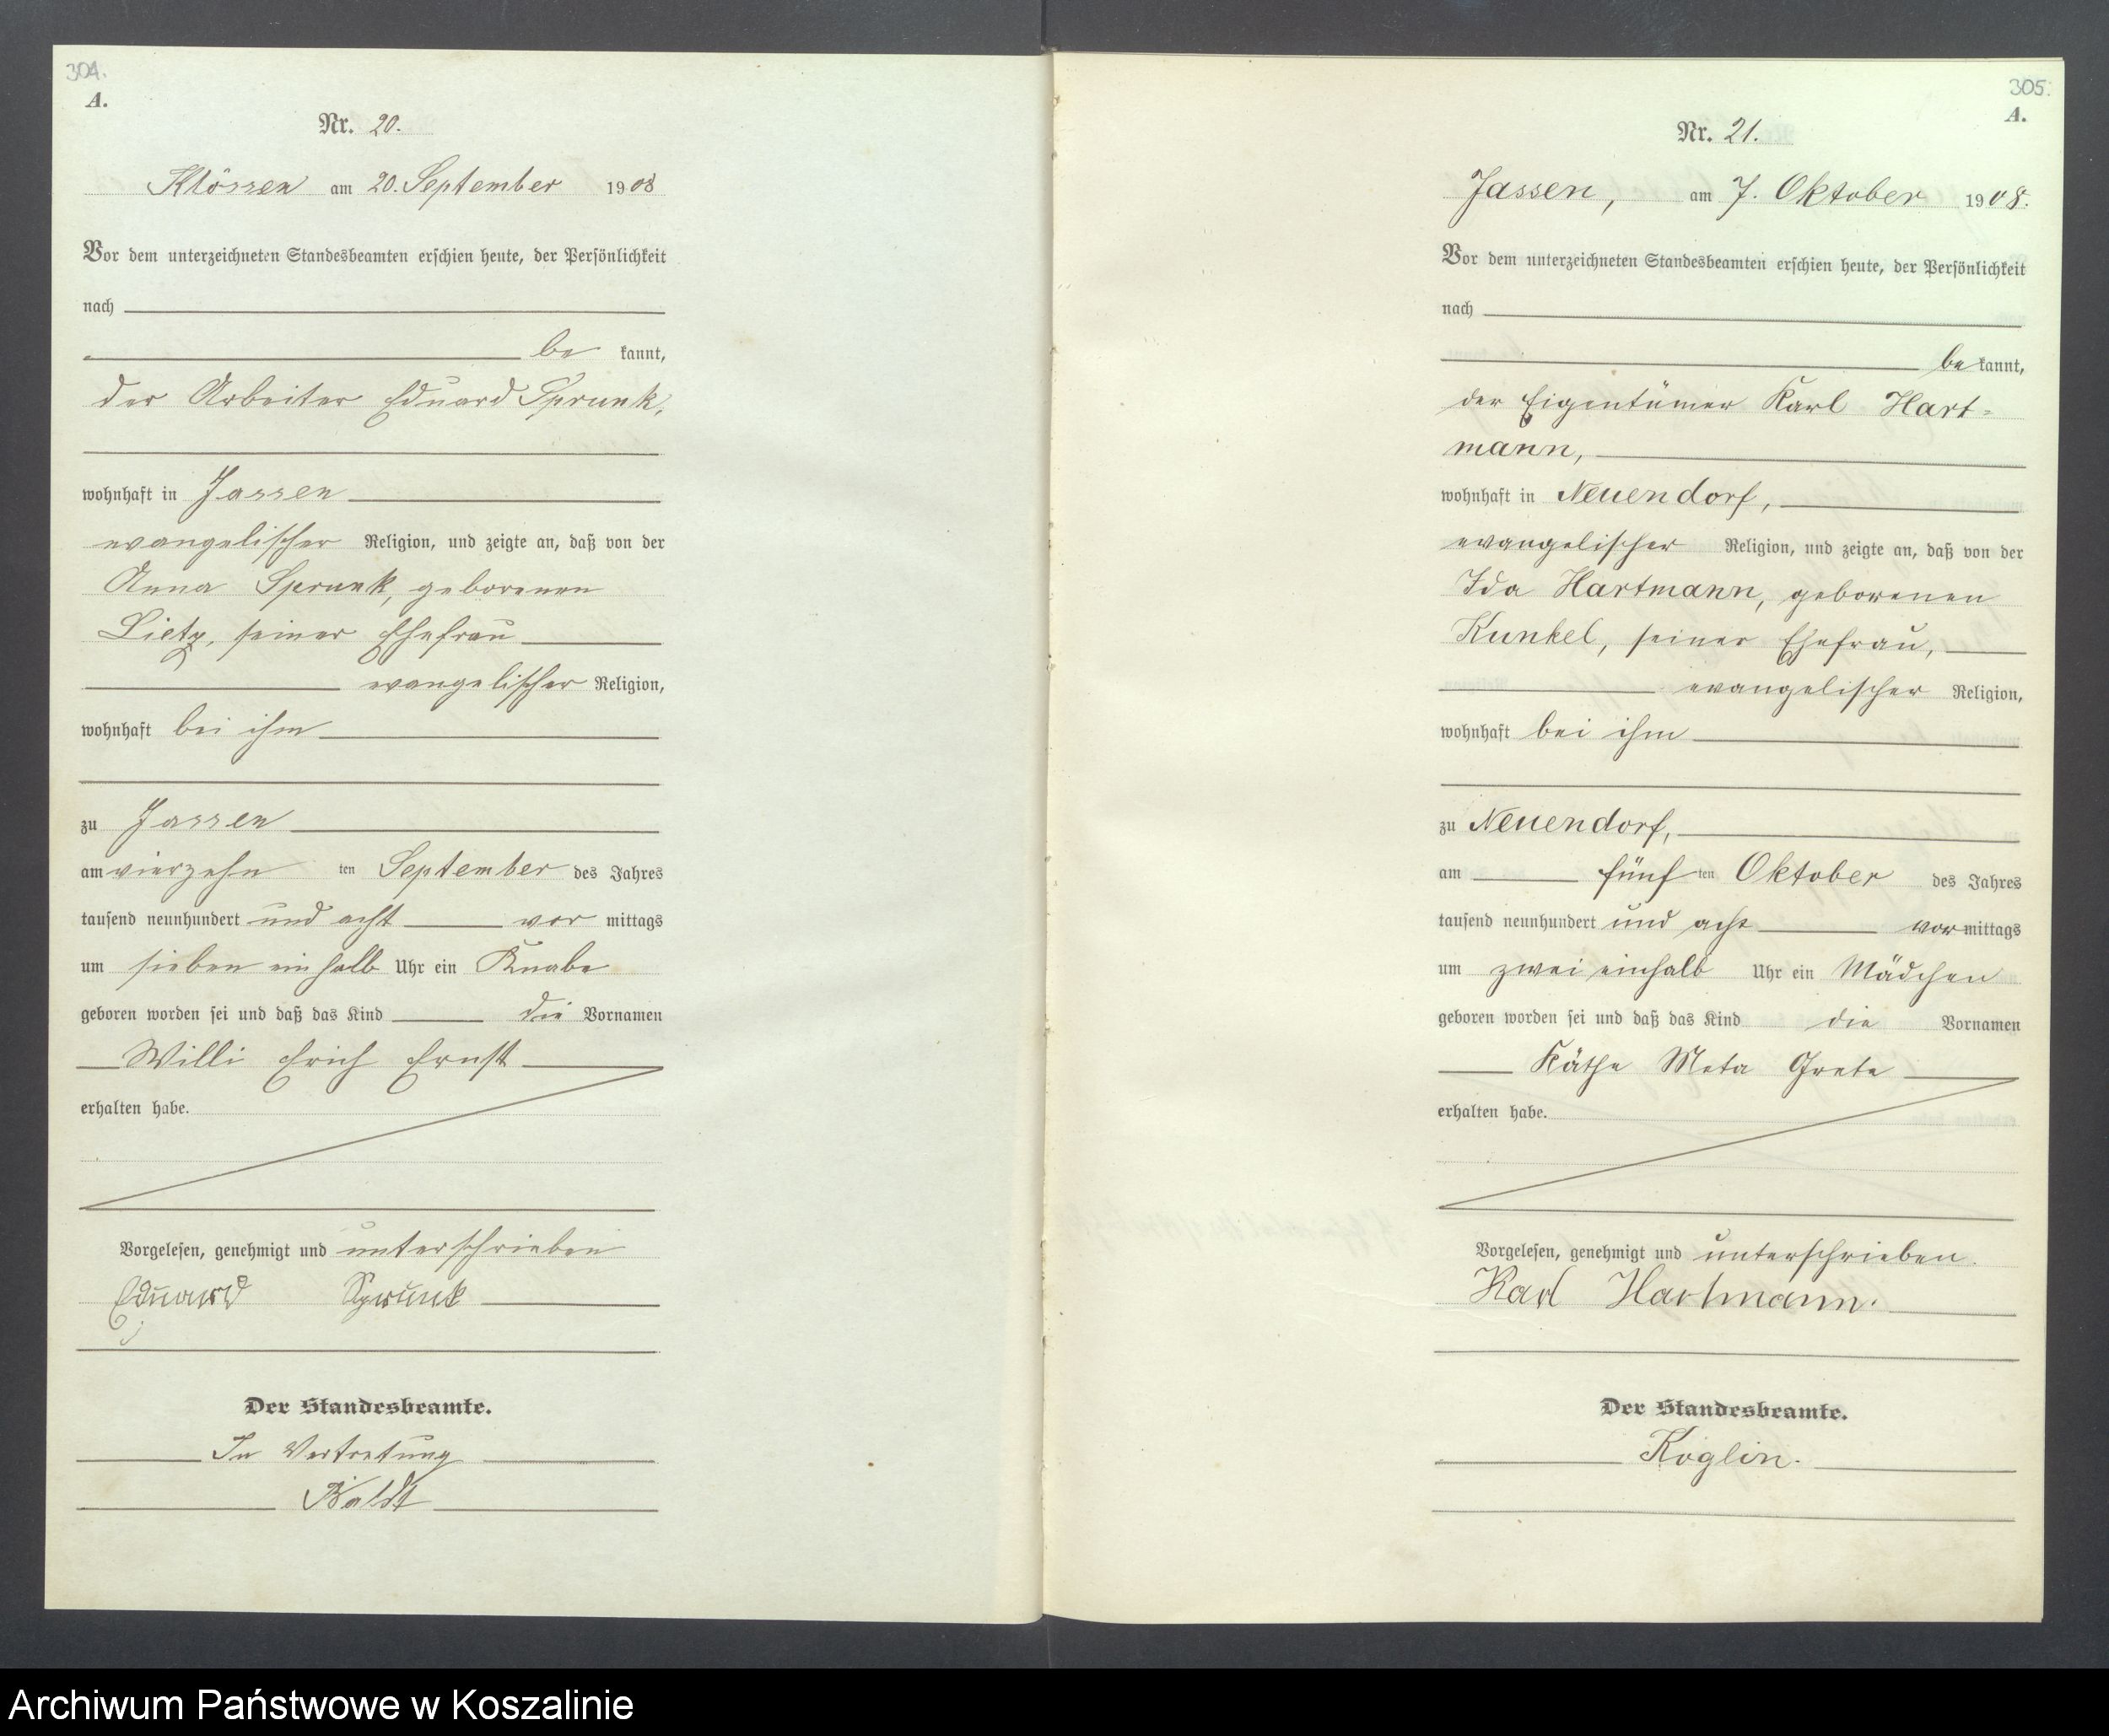 304.
A.
Nr. 20.
Klössen am 20. September 1908
Vor dem unterzeichneten Standesbeamten erschien heute, der Persönlichkeit
nach
be kannt,
der Arbeiter Eduard Sprunk,
wohnhaft in Jassen
evangelischer Religion, und zeigte an, daß von der
Anna Sprunk, geborenen
Lietz, seiner Ehefrau
evangelischer Religion,
wohnhaft bei ihm
zu Jassen
am vierzehn ten September des Jahres
tausend neunhundert und acht vor mittags
um sieben einhalb Uhr ein Knabe
geboren worden sei und daß das Kind die Vornamen
Willi Erich Ernst
erhalten habe.
Vorgelesen, genehmigt und unterschrieben
Eduard Sprunk
Der Standesbeamte.
In Vertretung
Boldt
305.
A.
Nr. 21.
Jassen, am 7. Oktober 1908.
Vor dem unterzeichneten Standesbeamten erschien heute, der Persönlichkeit
nach
be kannt,
der Eigentümer Karl Hart-
mann,
wohnhaft in Neuendorf,
evangelischer Religion, und zeigte an, daß von der
Ida Hartmann, geborenen
Kunkel, seiner Ehefrau,
evangelischer Religion,
wohnhaft bei ihm
zu Neuendorf,
am fünf ten Oktober des Jahres
tausend neunhundert und acht vormittags
um zwei einhalb Uhr ein Mädchen
geboren worden sei und daß das Kind die Vornamen
Käthe Meta Grete
erhalten habe.
Vorgelesen, genehmigt und unterschrieben.
Karl Hartmann.
Der Standesbeamte.
Koglin.
Archiwum Państwowe w Koszalinie